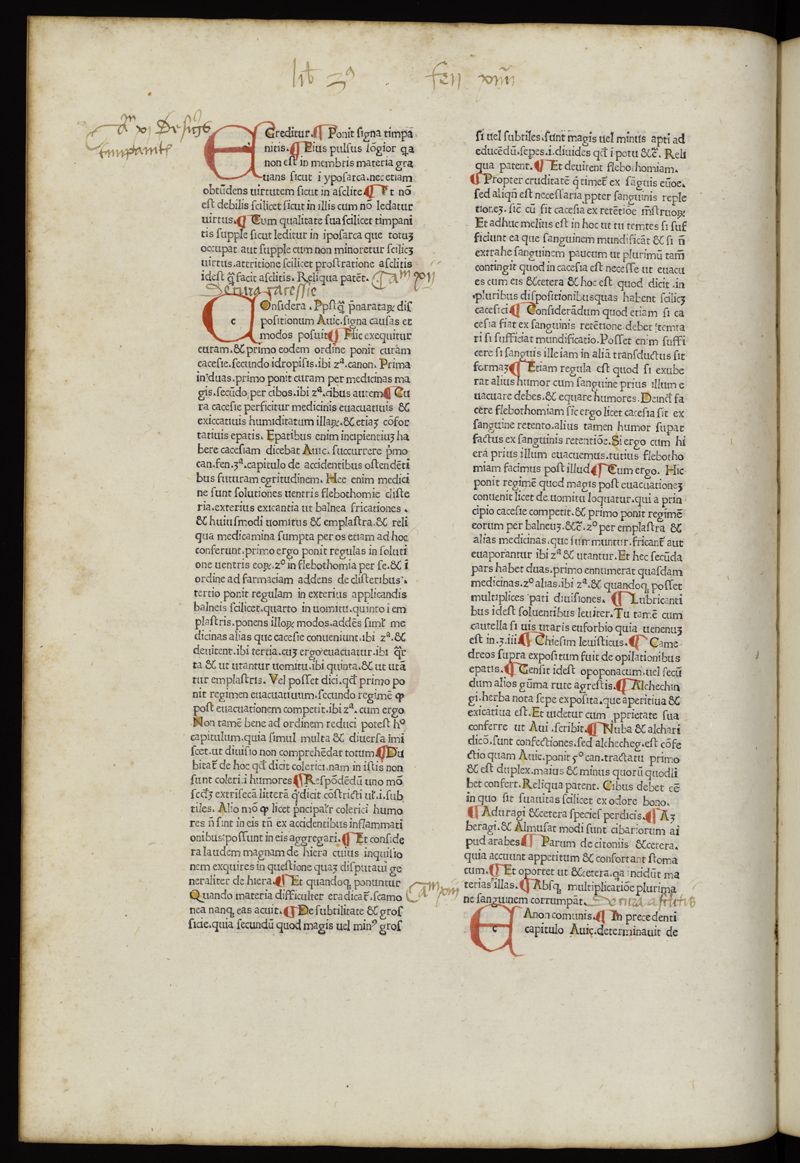 lib̅ 3ᵃ . fen xiiii
Greditur.¶ Ponit signa timpa
nitis.¶ Eius pulsus lo̅gior q̅a
non est in membris materia gra
uans sicut i yposarca.nec etiam
obtu̅dens uirtutem sicut in asclite¶ Et no̅
est debilis scilicet sicut in illis cum no̅ ledatur
uirtus.¶ Cum qualitate sua scilicet timpani
tis supple sicut leditur in iposarca que totuȝ
occupat aut supple cum non minoretur scilicȝ
uirtus.attritione scilicet prostratione asclitis
idest q̅ facit asclitis. Reliqua pate̅t.
Onsidera . Pp̅stq̅ p̅narataꝝ dis
positionum Auic.signa causas et
modos posuit¶ Hic exequitur
curam.& primo eodem ordine ponit cura̅m
cacesie.secundo idropisis.ibi zᵃ.canon. Prima
in duas.primo ponit curam per medicinas ma
gis.secu̅do per cibos.ibi zᵃ.cibus autem¶ Cu
ra cacesie perficitur medicinis euacuatiuis &
exiccatiuis humiditatum illaꝝ.& etiaȝ co̅for
tatiuis epatis. Epatibus enim incipientiuȝ ha
bere cacesiam dicebat Auic. succurrere p̅mo
can.fen.3ᵃ.capitulo de accidentibus oste̅de̅ti
bus futuram egritudinem. Hec enim medici
ne sunt solutiones uentris flebothomie cliste
ria.exterius exicantia ut balnea fricationes .
& huiusmodi uomitus & emplastra.& reli
qua medicamina sumpta per os etiam ad hoc
conferunt.primo ergo ponit regulas in soluti
one uentris eoꝝ.zº in flebothomia per se.& i̅
ordine ad farmaciam addens de clisteribus.
tertio ponit regulam in exterius applicandis
balneis scilicet.quarto in uomitu.quinto i em
plastris.ponens illoꝝ modos.adde̅s simĺ me
dicinas alias que cacesie conueniunt.ibi zᵃ.&
deuitent.ibi tertia.cuȝ ergo euacuatur.ibi q̅r
ta & ut utantur uomitu.ibi quinta.& ut uta̅
tur emplastris. Vel posset dici.qđ primo po
nit regimen euacuatiuum.secundo regime̅ ꝙ
post euacuationem competit.ibi zᵃ.cum ergo
Non tame̅ bene ad ordinem reduci potest hº
capitulum.quia simul multa & diuersa imi
scet.ut diuisio non comprehe̅dat totum¶ Du
bitat̅ de hoc qđ dicit colerici.nam in istis non
sunt coleri.i humores¶ Respo̅de̅du̅ uno mo̅
sec̅dȝ extriseca̅ littera̅ q̅ dicit co̅stricti uł.i.sub
tiles. Alio mo̅ ꝙ licet p̅ncipalr̅ colerici humo
res n̅ sint in eis tn̅ ex accidentibus inflammati
onibus possunt in eis aggregari.¶ Et conside
ra laudem magnam de hiera cuius inquisitio
nem exquires in questione quaȝ disputaui ge
neraliter de hiera.¶ Et quandoq; ponuntur
Quando materia difficulter eradicat̅.scamo
nea nanq; eas acuit.¶ De subtilitate & gros
sicie.quia secundu̅ quod magis uel minꝰ gros
si uel subtiles.sunt magis uel minus apti ad
educe̅du̅.sepes.i.diuides qđ i potu &c̅. Reli
qua patent.¶ Et deuitent flebothomiam.
¶ Propter cruditate̅ q̅ timet̅ ex sa̅guis
sed aliqn̅ est necessaria ꝓpter sanguinis reple
tione̅. sic̅ cu̅ sit cacesia ex rete̅tioe m̅struoꝝ
Et adhuc melius est in hoc ut tu temtes si suf
ficiunt ea que sanguinem mundifica̅t & si n̅
extrahe sanguinem paucum ut plurimu̅ tam̅
contingit quod in cacesia est necesse ut euacu
es cum eis &cetera & hoc est quod dicit .in
pluribus dispositionibus quas habent scilicȝ
cacesici¶ Considera̅dum quod etiam si ca
cesia fiat ex sanguinis rete̅tione debet temta
ri si sufficiat mundificatio.Posset enim suffi
cere si sanguis ille iam in alia̅ transductus sit
formaȝ¶ Etiam regula est quod si exube
rat alius humor cum sanguine prius illum e
uacuare debes.& equare humores. Deinc̅t fa
cere flebothomiam sic̅ ergo licet cacesia sit ex
sanguine retento.alius tamen humor supat
factus ex sanguinis retentio̅e. Si ergo cum hi
era prius illum euacuemus.tutius flebotho
miam facimus post illud¶ Cum ergo. Hic
ponit regime̅ quod magis post euacuationeȝ
conuenit licet de uomitu loquatur.qui a prin
cipio cacesie competit.& primo ponit regime̅
eorum per balneuȝ.&c̅.zº per emplastra &
alias medicinas.que summuntur.fricant̅ aut
euaporantur ibi zᵃ & utantur. Et hec secu̅da
pars habet duas.primo ennumerat quasdam
medicinas.zº alias.ibi zᵃ.& quandoq; posset
multiplices pati diuisiones. ¶ Lubricanti
bus idest soluentibus leuiter. Tu tame̅ cum
cautella si uis utaris euforbio quia uenenuȝ
est in.3.iiii¶ Chiesim leuisticus.¶ Came
dreos supra expositum fuit de opilationibus
epatis.¶ Gensit idest opoponacum.uel secu̅
dum alios gu̅ma rute agrestis.¶ Alchechin
gi.herba nota sepe exposita.que aperitiua &
exicatiua est. Et uidetur cum ꝓprietate sua
conferre ut Aui .scribit.¶ Nuba & alchari
dico̅.sunt confectiones.sed alchecheg.est co̅fe
ctio quam Auic.ponit 5º can.tractatu primo
& est duplex.maius & minus quoru̅ quodli
bet confert. Reliqua patent. Cibus debet ee̅
in quo sit suauitas scilicet ex odore bono.
¶ Aduragi &cetera species perdicis.¶ Aȝ
beragi.& Almusat modi sunt cibariorum ai
pud arabes¶ Parum de citoniis &cetera.
quia accuunt appetitum & confortant stoma
cum.¶ Et oportet ut &cetera.q̅a incidu̅t ma
terias illas.¶ Absq; multiplicatio̅e plurima
ne sanguinem corrumpat.
Anon comunis.¶ In precedenti
capitulo Auic̨.determinauit de